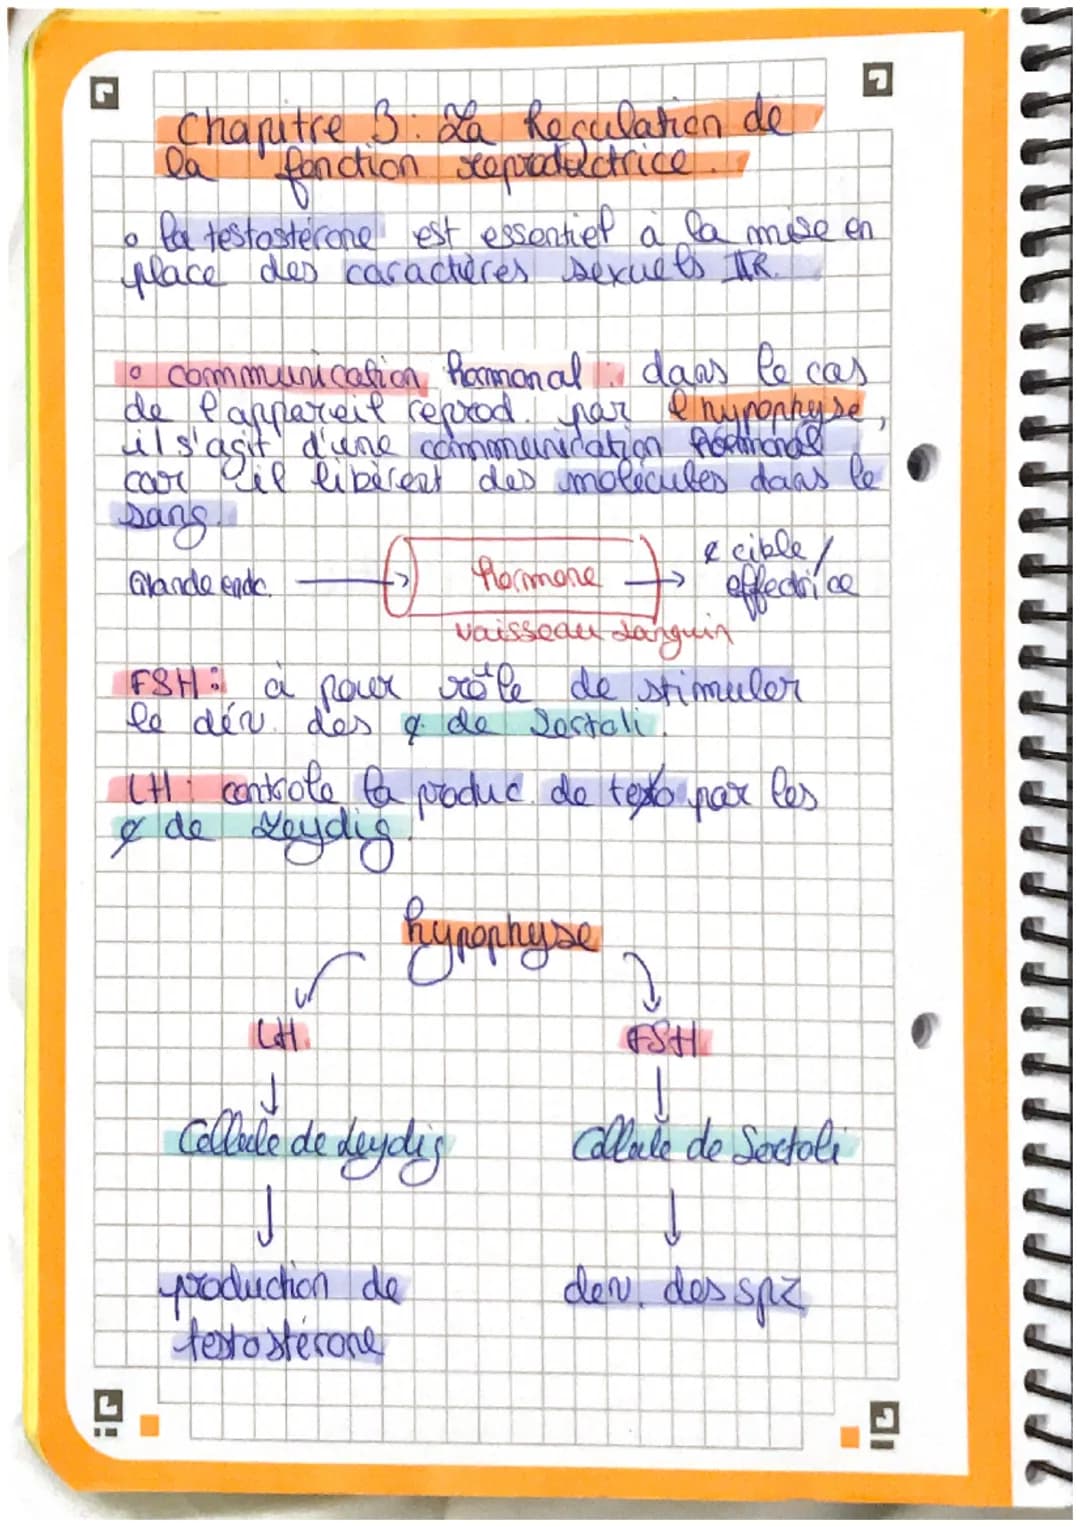 Chapitre 3: La Regulation de
la fonction reproductrice.
la testostérone est essentiel à la mise en
place des caractères sexuels IIR.
communication hormonal : dans le cas
de l'appareil reprod. par l'hypophyse,
il s'agit d'une communication hormonal
car il libèrent des molécules dans le
sang.
Glande endo. → hormone → ¢ cible /
effectrice
vaisseau sanguin
FSH : à pour rôle de stimuler
le dév. des ¢ de Sertoli.
LH : controle la produc. de testo par les
¢ de Leydig.
hypophyse
LH. FSH
↓ ↓
Cellule de Leydig Cellule de Sertoli
↓ ↓
production de dev. des spz
testostérone